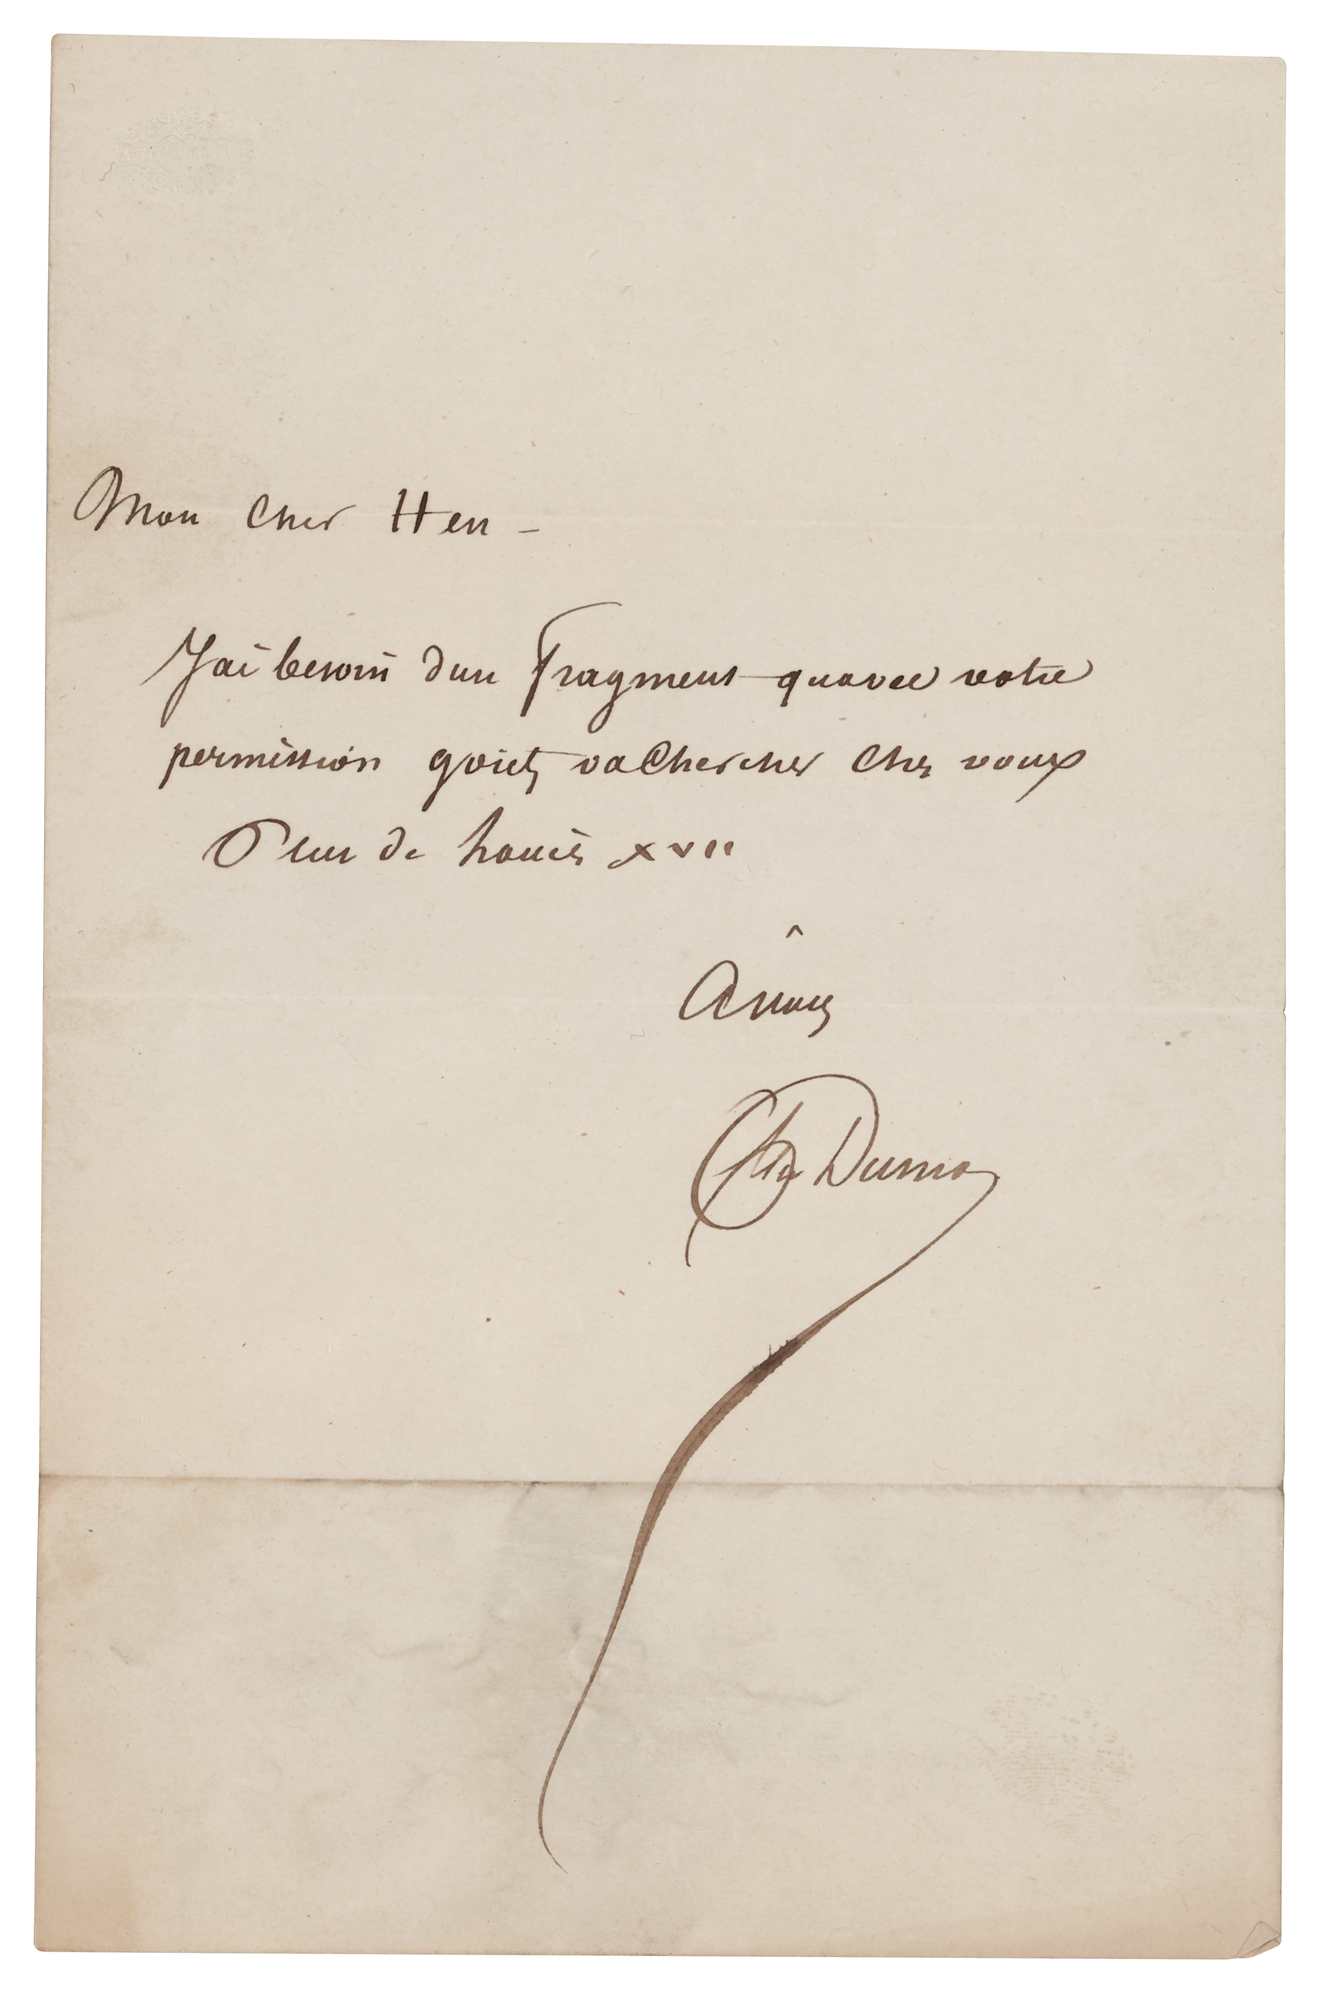 Mon cher Hen –
J'ai besoin dun fragment quavec votre
permission goietz va chercher chez vous
Sur de Louis XVII
A vous
Alex Dumas